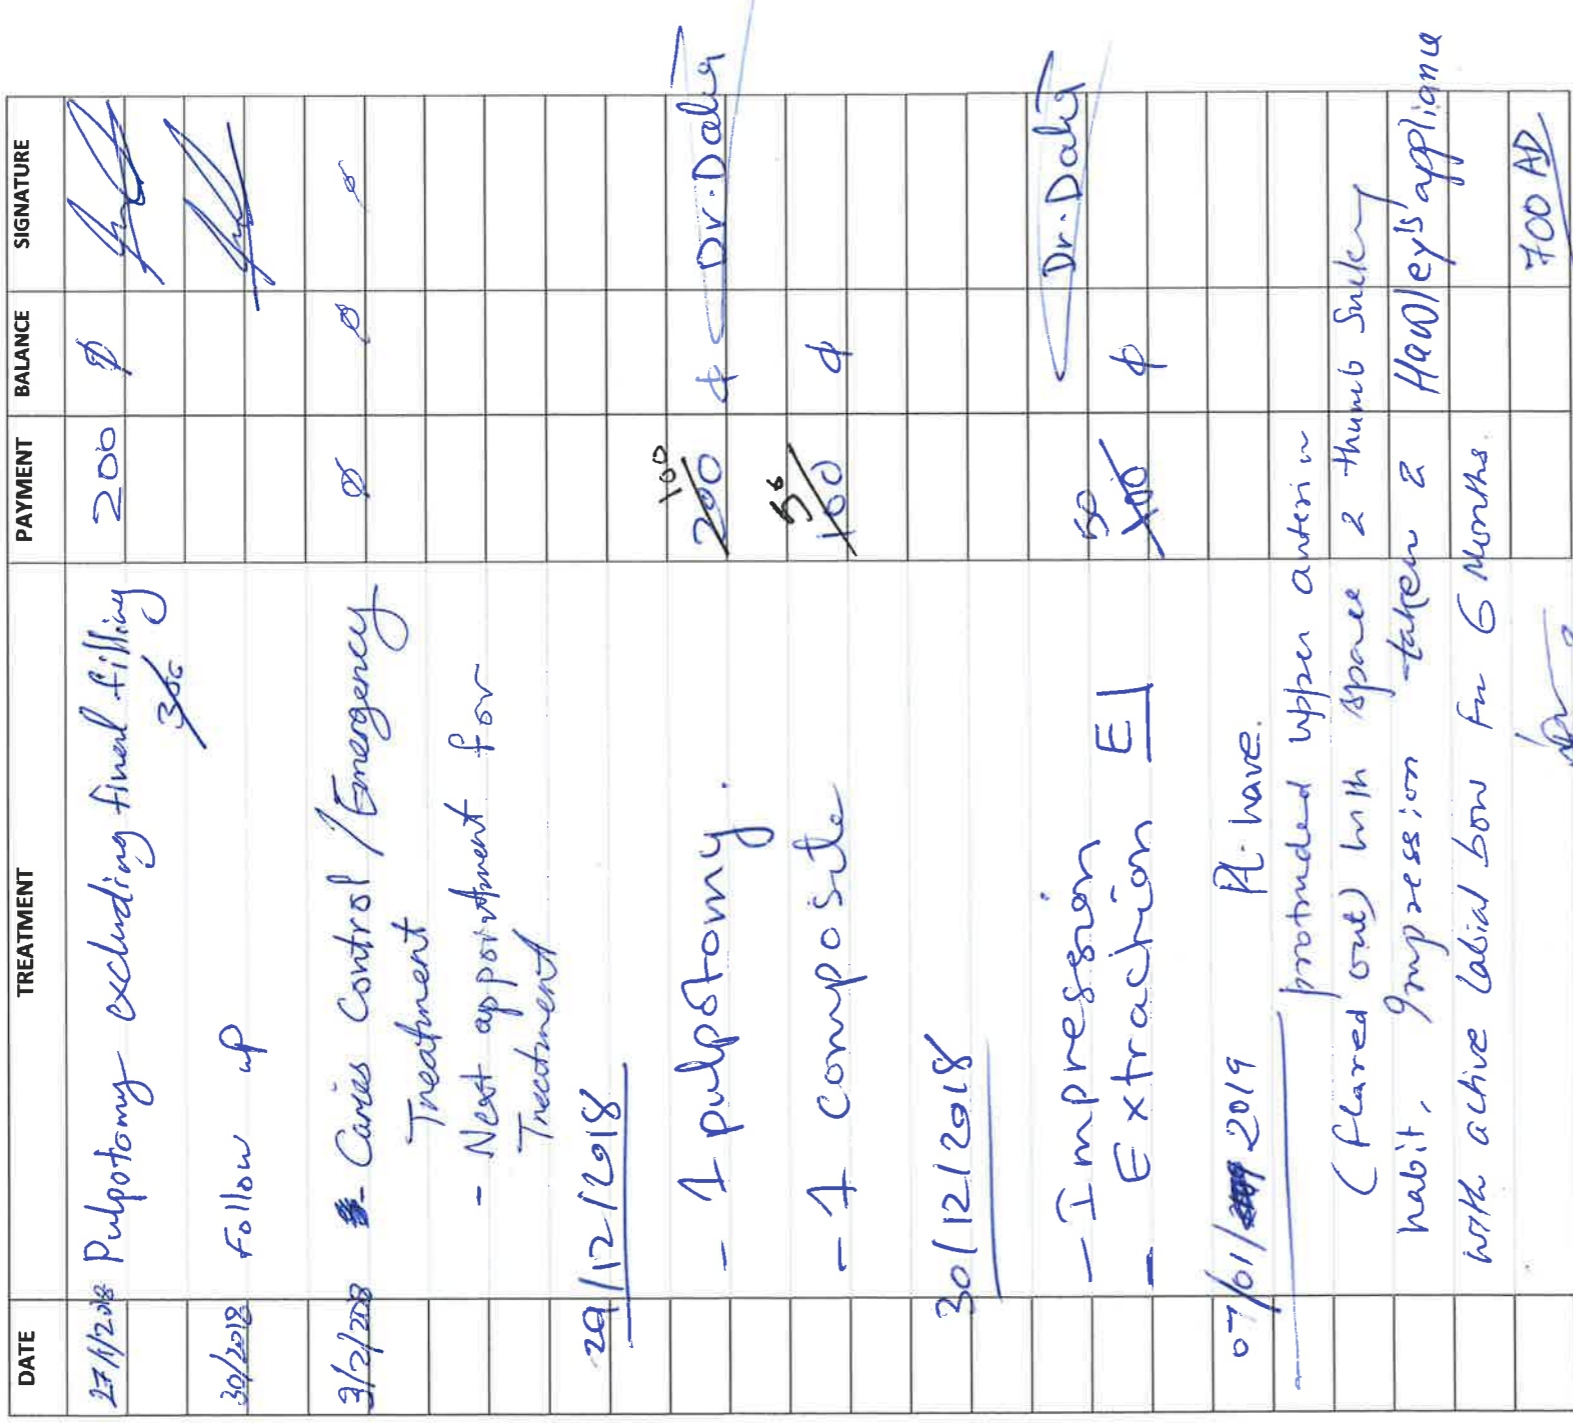 DATE TREATMENT PAYMENT BALANCE SIGNATURE
27/1/2018 Pulpotomy excluding final filling 200 ∅
300
30/2018 Follow up
3/2/2018 - Caries Control / Emergency ∅ ∅ ∅
Treatment
- Next appointment for
Treatment
29/12/2018
100
- 1 pulpotomy. 200 ϕ Dr. Dalia
50
- 1 Composite 100 ϕ
30/12/2018
- Impression Dr. Dalia
50
- Extraction E| 100 ϕ
07/01/2019 Pt. have.
protruded upper anterior
(flared out) with space & thumb Suckiny
habit, Impression taken & Hawley's appliance
with active labial bow for 6 Months.
700 AD